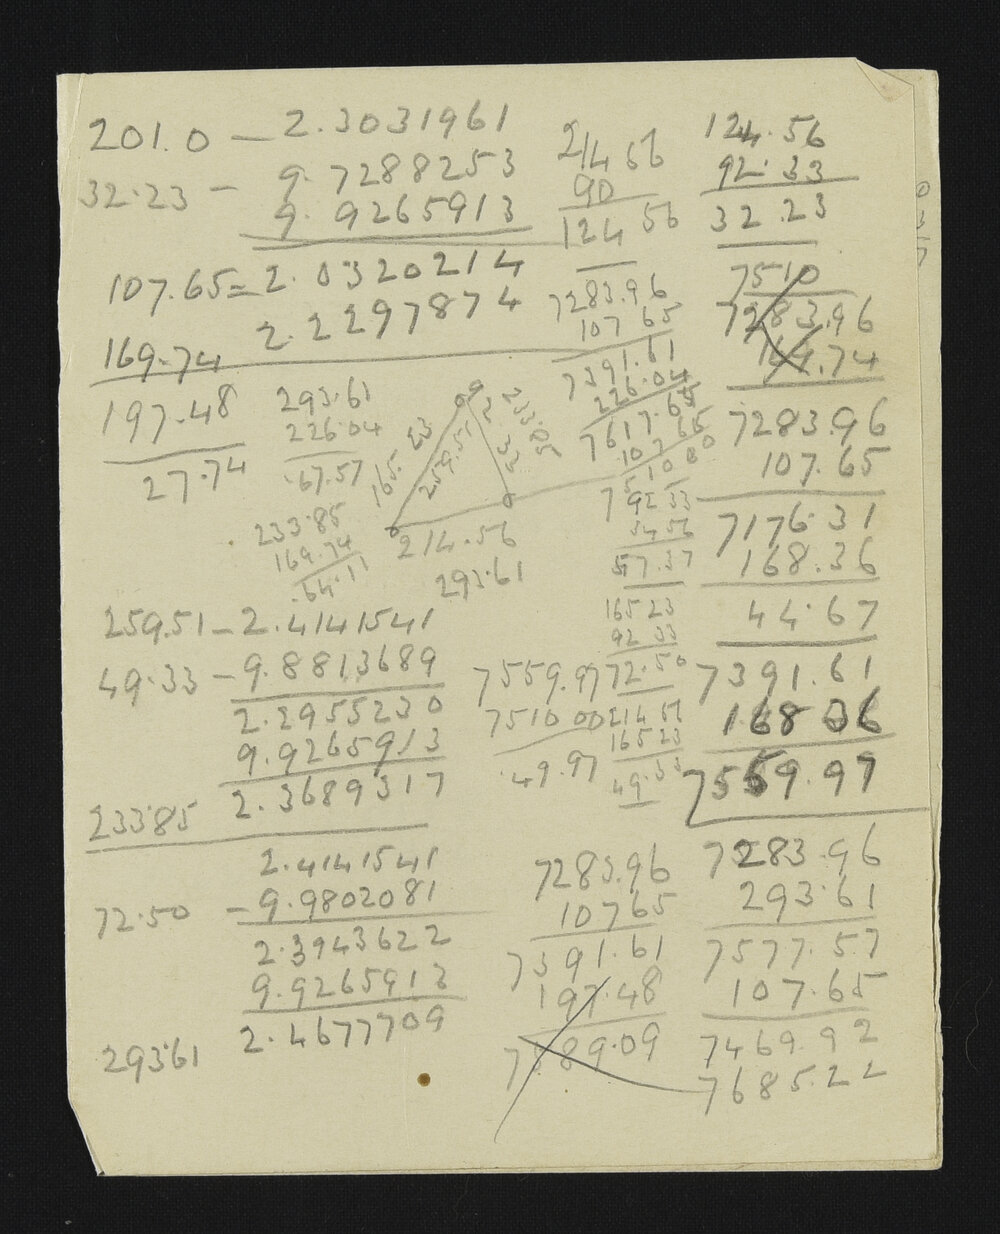 201.0 — 2.3031961
32.23 — 9.7288253
9.9265913
107.65 = 2.0320214
2.2297874
169.74
197.48
27.74
293.61
226.04
67.57
233.85
169.74
64.11
214.56
90
124.56
7283.96
107.65
7391.61
226.04
7617.65
107.65
7510.00
92.33
34.56
57.37
165.23
92.33
72.50
214.56
165.23
49.33
124.56
92.33
32.23
7510
7283.96
169.74
7283.96
107.65
7176.31
168.36
44.67
7391.61
168.06
7559.97
165.23
259.51
92.33
233.85
214.56
293.61
259.51 — 2.4141541
49.33 — 9.8813689
2.2955230
9.9265913
233.85 2.3689317
2.4141541
72.50 — 9.9802081
2.3943622
9.9265913
2.4677709
293.61
7559.97
7510.00
49.97
7283.96
107.65
7391.61
197.48
7589.09
7283.96
293.61
7577.57
107.65
7469.92
7685.22